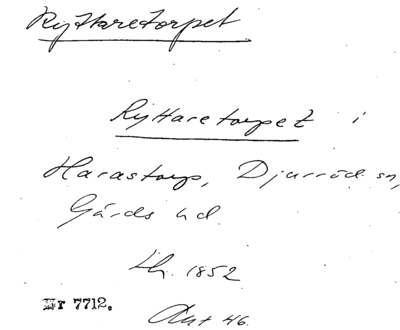 Ryttaretorpet
Ryttaretorpet i
Harastorp, Djurröd sn,
Gärds hd.
Lh. 1852
Nr 7712.
Avt 46.